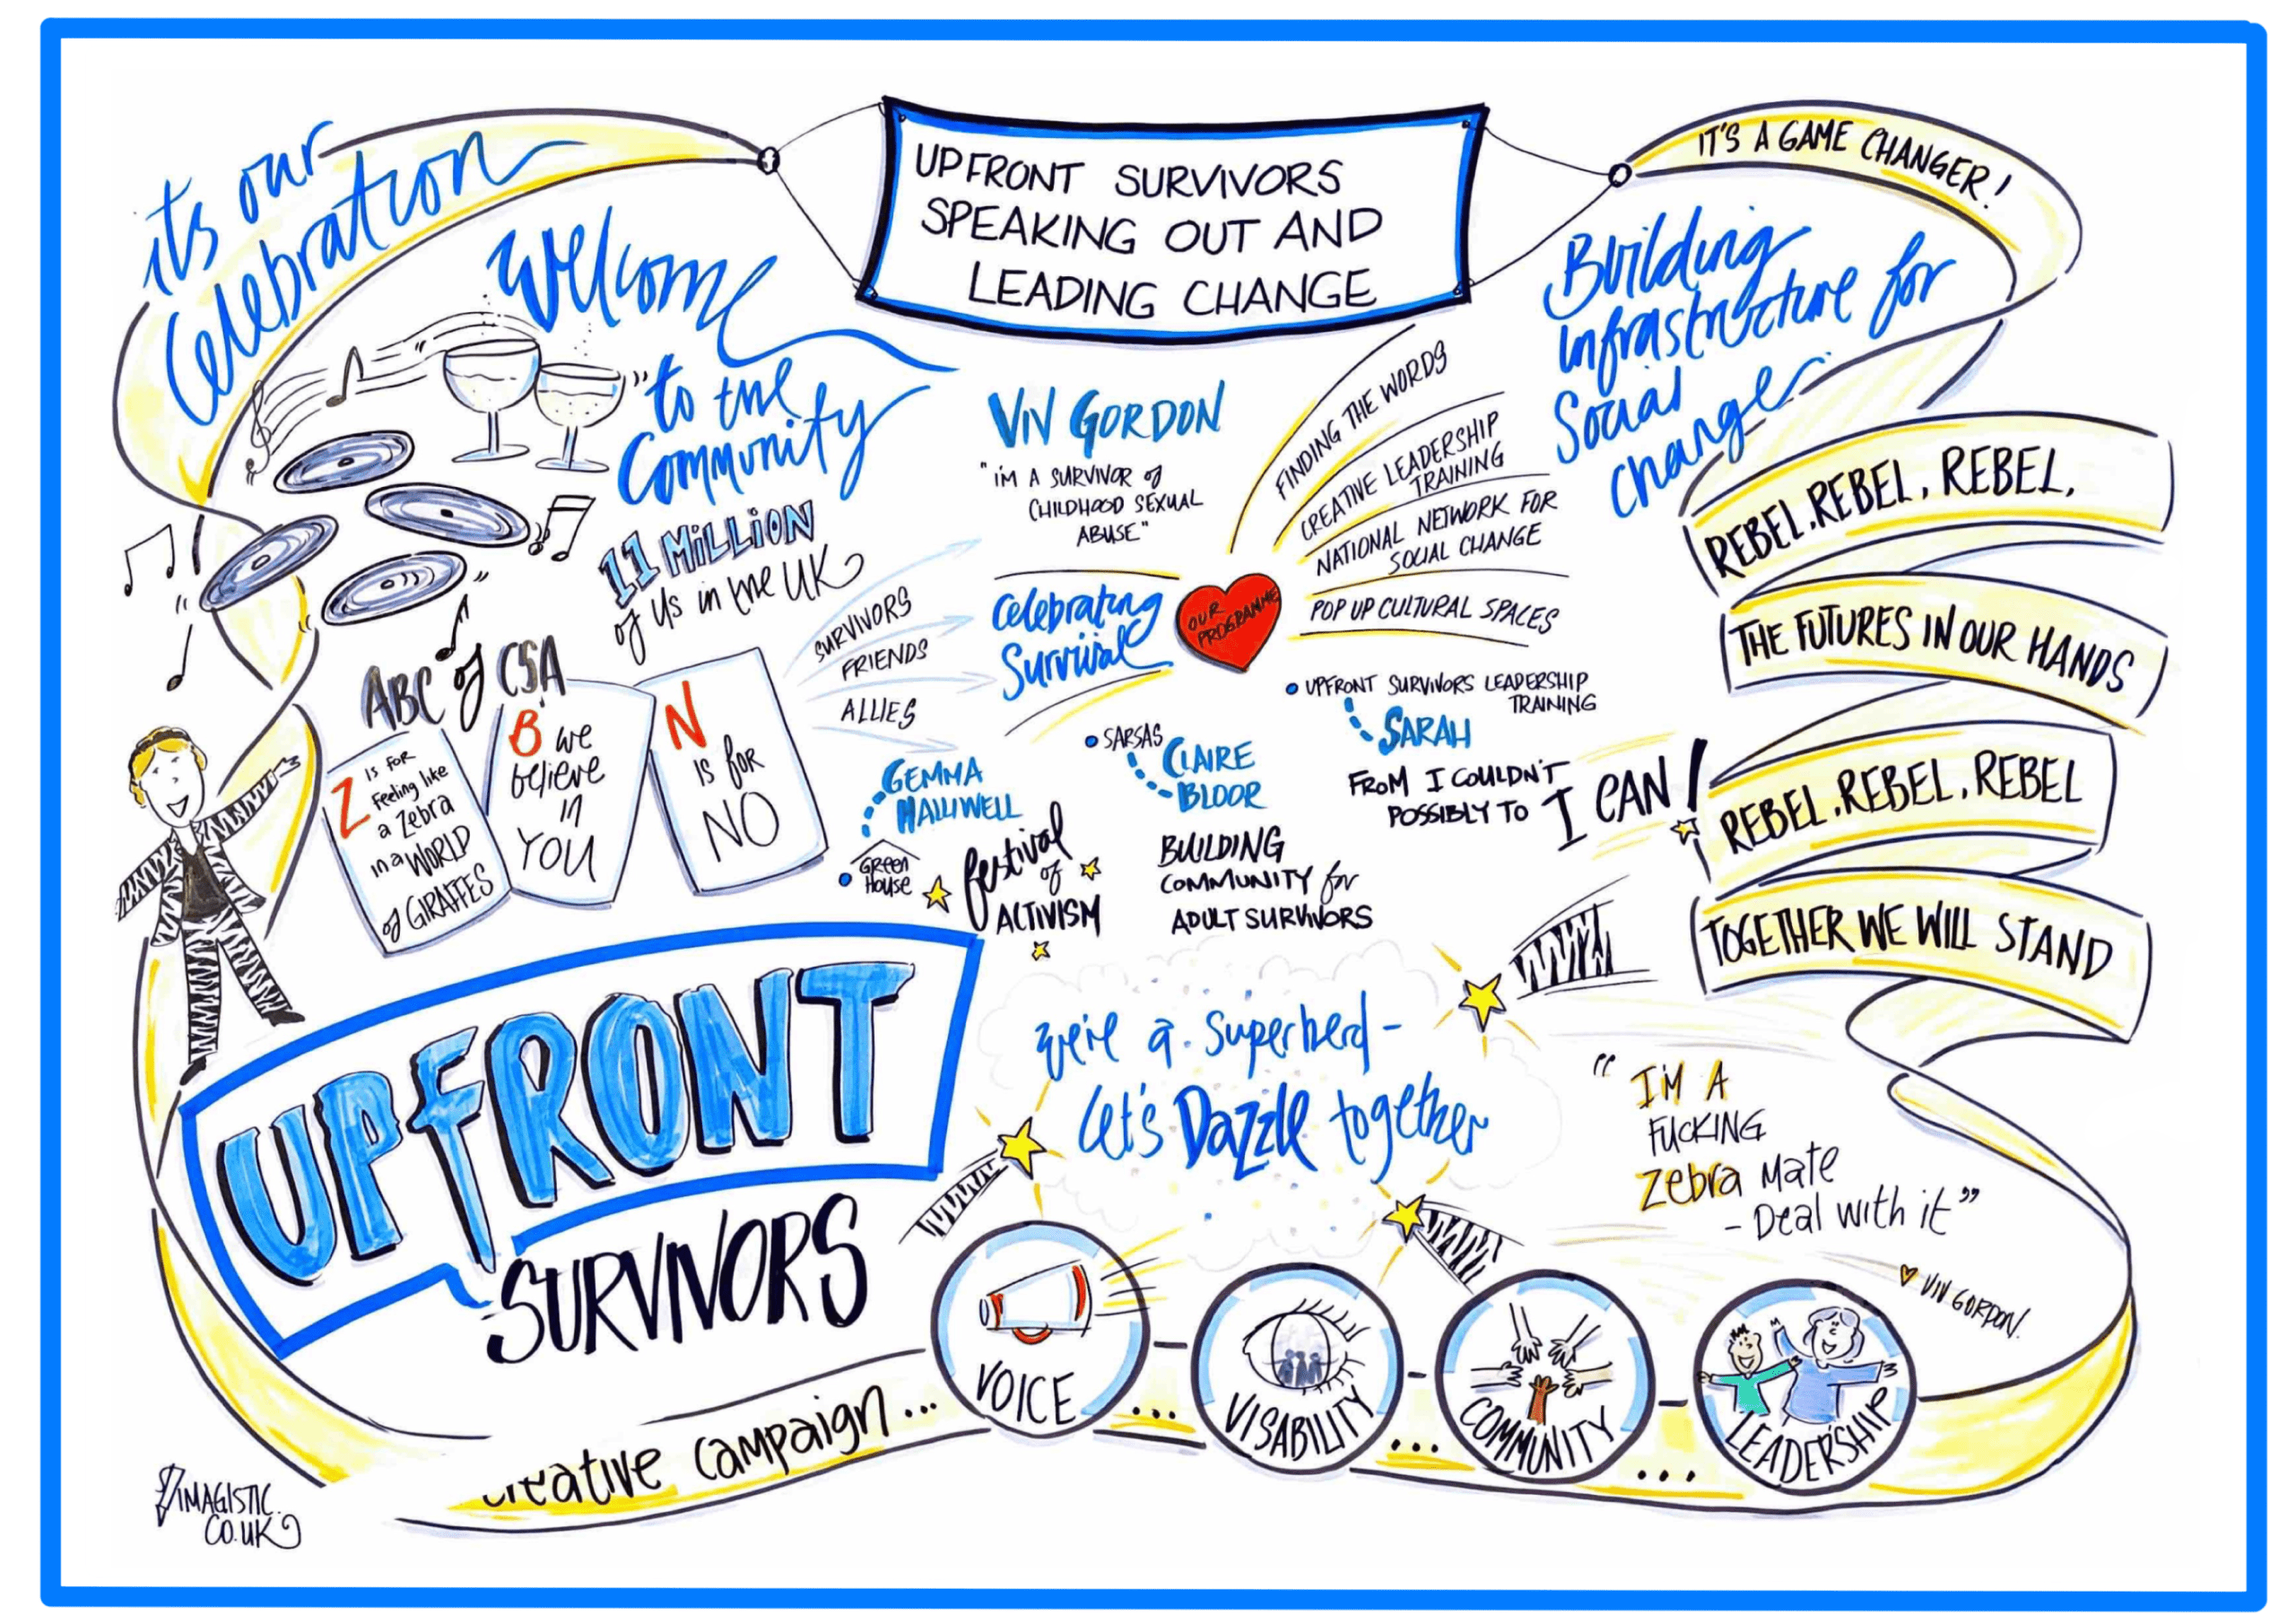 its our
celebration
UPFRONT SURVIVORS
SPEAKING OUT AND
LEADING CHANGE
IT'S A GAME CHANGER!
Welcome
to the
Community
11 MiLLiON
of us in the UK
SURVIVORS
FRIENDS
ALLIES
VIV GORDON
"I'M A SURVIVOR of
CHILDHOOD SEXUAL
ABUSE"
Celebrating
Survival
OUR
PROGRAMME
FINDING THE WORDS
CREATIVE LEADERSHIP
TRAINING
NATIONAL NETWORK FOR
SOCIAL CHANGE
POP UP CULTURAL SPACES
Building
infrastructure for
Social
change
REBEL, REBEL, REBEL,
THE FUTURES IN OUR HANDS
REBEL, REBEL, REBEL
TOGETHER WE WILL STAND
ABC of CSA
Z IS FOR
Feeling like
a Zebra
in a WORLD
of GIRAFFES
B we
believe
in
YOU
N
IS FOR
NO
GEMMA
HALLIWELL
Green
House
festival
of
ACTIVISM
SARSAS
CLAIRE
BLOOR
BUILDING
COMMUNITY for
ADULT SURVIVORS
UPFRONT SURVIVORS LEADERSHIP
TRAINING
SARAH
FROM I COULDN'T
POSSIBLY TO
I CAN!
UPFRONT
SURVIVORS
we're a superherd -
let's Dazzle together
"I'M A
FUCKING
Zebra Mate
- Deal with it"
VIV GORDON.
creative campaign...
VOICE
...
VISABILITY
...
COMMUNITY
...
LEADERSHIP
IMAGISTIC.
CO.UK